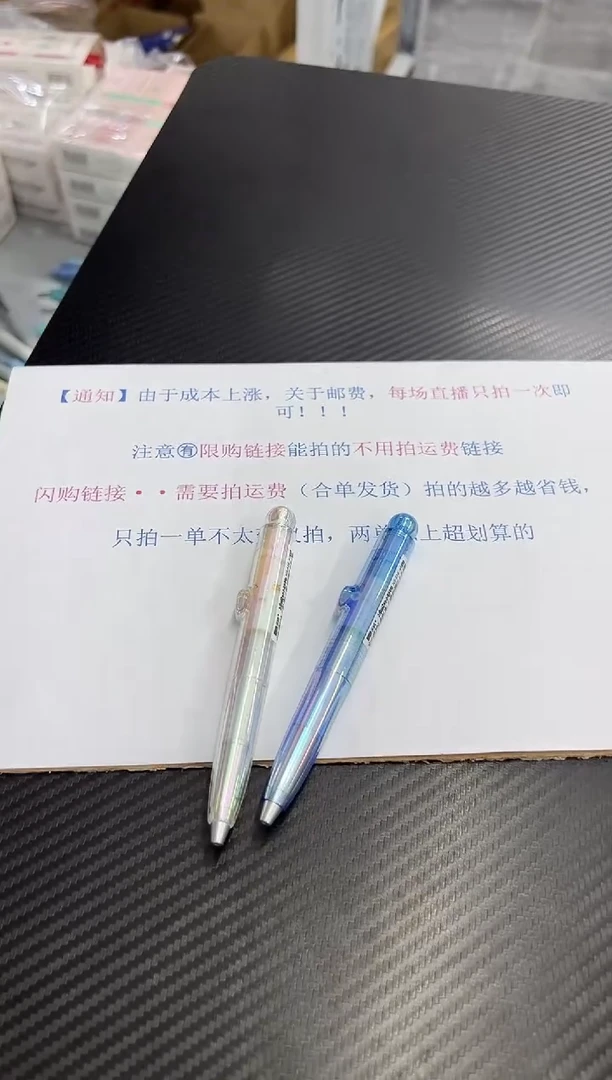 【通知】由于成本上涨，关于邮费，每场直播只拍一次即
可！！！
注意㊒限购链接能拍的不用拍运费链接
闪购链接··需要拍运费（合单发货）拍的越多越省钱，
只拍一单不太 拍，两 上超划算的